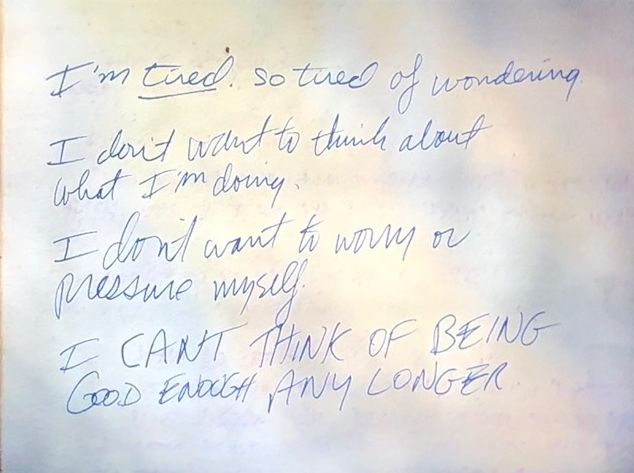 I'm tired. so tired of wondering.
I don't want to think about
what I'm doing.
I don't want to worry or
pressure myself.
I CAN'T THINK OF BEING
GOOD ENOUGH ANY LONGER